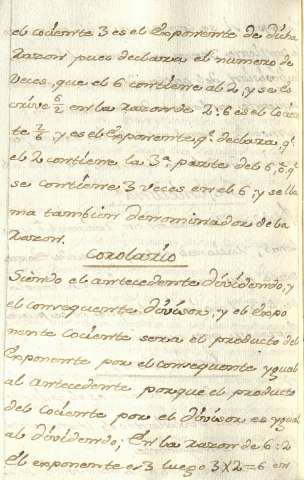 el cociente 3 es el Exponente de dicha
Razon pues declara el numero de
Veces, que el 6 contiene al 2, y se es
crive 6/2 en la razon de 2:6 es el cocien
te 2/6 y es el Exponente, q.e declara, q.e
el 2 contiene la 3.a parte del 6, ô, q.e
se contiene 3 veces en el 6, y se lla
ma tambien denominador de la
Razon.
Corolario
Siendo el antecedente dividendo, y
el consequente divisor, y el Expo
nente Cociente sera el producto del
Exponente por el consequente ygual
al antecedente porque el producto
del cociente por el divisor es ygual
al dividendo; En la razon de 6:2
El exponente es 3 luego 3X2=6 en